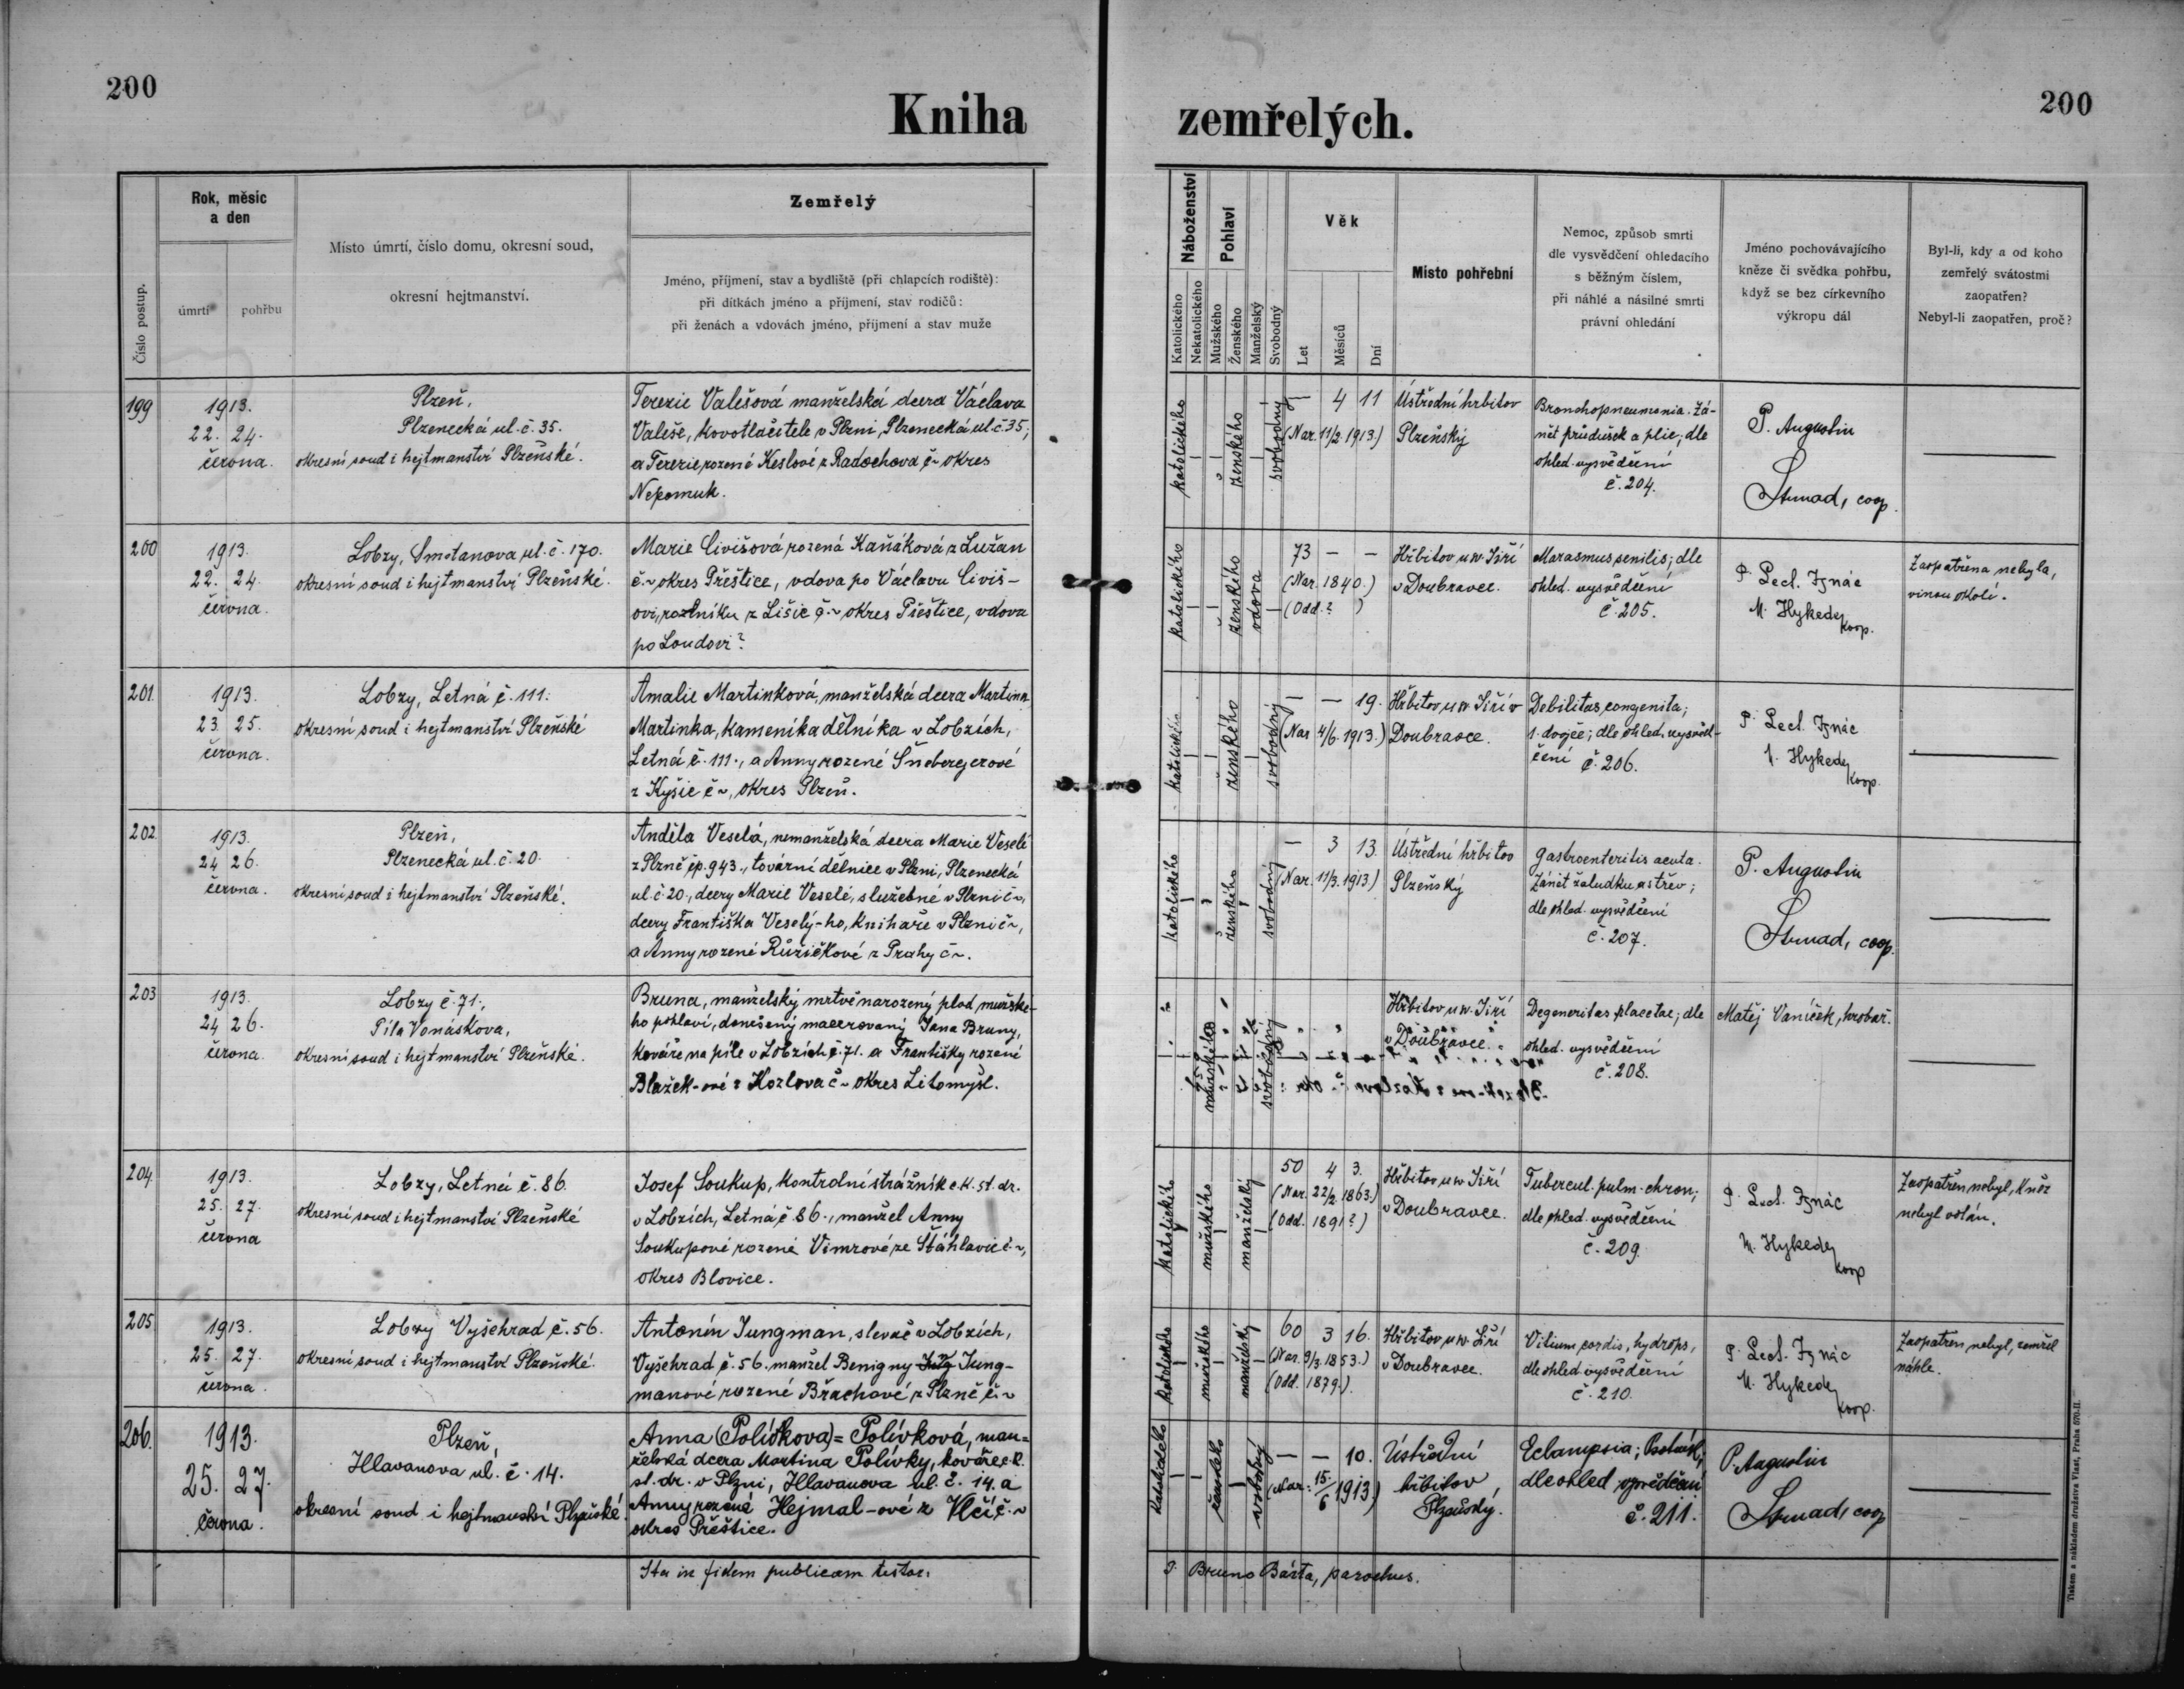 200
Kniha
zemřelých.
200
Číslo postup.
Rok, měsíc
a den
úmrtí
pohřbu
Místo úmrtí, číslo domu, okresní soud,
okresní hejtmanství.
Zemřelý
Jméno, příjmení, stav a bydliště (při chlapcích rodiště):
při dítkách jméno a příjmení, stav rodičů:
při ženách a vdovách jméno, příjmení a stav muže
Náboženství
Katolického
Nekatolického
Pohlaví
Mužského
Ženského
Manželský
Svobodný
Věk
Let
Měsíců
Dní
Místo pohřební
Nemoc, způsob smrti
dle vysvědčení ohledacího
s běžným číslem,
při náhlé a násilné smrti
právní ohledání
Jméno pochovávajícího
kněze či svědka pohřbu,
když se bez církevního
výkropu dál
Byl-li, kdy a od koho
zemřelý svátostmi
zaopatřen?
Nebyl-li zaopatřen, proč?
199
1913.
22. 24.
června.
Plzeň,
Plzenecká ul. č. 35.
okresní soud i hejtmanství Plzeňské.
Terezie Valešová manželská dcera Václava
Valeše, kovotlačitele v Plzni, Plzenecká ul. č. 35,
a Terezie rozené Keslové z Radochova č~ okres
Nepomuk.
katolického
ženského
svobodný
— 4 11
(Nar. 11/2. 1913.)
Ústřední hřbitov
Plzeňský
Bronchopneumonia. Zá-
nět průdušek a plic; dle
ohled. vysvědčení
č. 204.
P. Augustin
Strnad, coop.
200
1913.
22. 24.
června.
Lobzy, Smetanova ul. č. 170.
okresní soud i hejtmanství Plzeňské.
Marie Civišová rozená Kaňáková z Lužan
č.~ okres Přeštice, vdova po Václavu Civiš-
ovi, rolníku z Lišic č.~ okres Přeštice, vdova
po Loudovi?
katolického
ženského
vdova
73 — —
(Nar. 1840.)
(Odd. ? )
Hřbitov u sv. Jiří
v Doubravce.
Marasmus senilis; dle
ohled. vysvědčení
č. 205.
P. Lecl. Ignác
M. Hykede
koop.
Zaopatřena nebyla,
vinou okolí.
201
1913.
23. 25.
června.
Lobzy, Letná č. 111.
okresní soud i hejtmanství Plzeňské
Amalie Martinková, manželská dcera Martina
Martinka, kameníka dělníka v Lobzích,
Letná č. 111., a Anny rozené Šnebergerové
z Kyšic č~, okres Plzeň.
katolického
ženského
svobodný
— — 19.
(Nar. 4/6. 1913.)
Hřbitov u sv. Jiří v
Doubravce.
Debilitas congenita;
1. dvojče; dle ohled. vysvěd-
čení č. 206.
P. Lecl. Ignác
M. Hykede
koop.
202
1913.
24 26.
června.
Plzeň,
Plzenecká ul. č. 20.
okresní soud i hejtmanství Plzeňské.
Anděla Veselá, nemanželská dcera Marie Veselé
z Plzně čp. 943., tovární dělnice v Plzni, Plzenecká
ul. č. 20., dcery Marie Veselé, služebné v Plzni č~,
dcery Františka Veselý-ho, knihaře v Plzni č~,
a Anny rozené Růžičkové z Prahy č~.
katolického
ženského
svobodný
— 3 13.
(Nar. 11/3. 1913.)
Ústřední hřbitov
Plzeňský
Gastroenteritis acuta.
Zánět žaludku a střev;
dle ohled. vysvědčení
č. 207.
P. Augustin
Strnad, coop.
203
1913.
24 26.
června.
Lobzy č. 71.,
Pila Vonáskova,
okresní soud i hejtmanství Plzeňské.
Bruna, manželský mrtvě narozený plod mužské-
ho pohlaví, donešený macerovaný Jana Bruny,
kováře na pile v Lobzích č. 71. a Františky rozené
Blažek-ové z Kozlova č~ okres Litomyšl.
mužského
svobodný
Hřbitov u sv. Jiří
v Doubravce.
Degeneritas placetae; dle
ohled. vysvědčení
č. 208.
Matěj Vaníček, hrobař.
204
1913.
25. 27.
června
Lobzy, Letná č. 86.
okresní soud i hejtmanství Plzeňské
Josef Soukup, kontrolní strážník c. k. st. dr.
v Lobzích, Letná č. 86., manžel Anny
Soukupové rozené Vimrové ze Stáhlavic č.~,
okres Blovice.
katolického
mužského
manželský
50 4 3.
(Nar. 22/2. 1863.)
(Odd. 1891?)
Hřbitov u sv. Jiří
v Doubravce.
Tubercul. pulm. chron;
dle ohled. vysvědčení
č. 209.
P. Lecl. Ignác
M. Hykede
koop
Zaopatřen nebyl, kněz
nebyl volán.
205
1913.
25. 27.
června.
Lobzy Vyšehrad č. 56.
okresní soud i hejtmanství Plzeňské.
Antonín Jungman, slevač v Lobzích,
Vyšehrad č. 56. manžel Benigny Jung Jung-
manové rozené Břachové z Plzně č.~
katolického
mužského
manželský
60 3 16.
(Nar. 9/3. 1853.)
(Odd. 1879.)
Hřbitov u sv. Jiří
v Doubravce.
Vitium cordis, hydrops,
dle ohled. vysvědčení
č. 210.
P. Lecl. Ignác
M. Hykede
koop.
Zaopatřen nebyl, zemřel
náhle.
206.
1913.
25. 27.
června.
Plzeň,
Hlavanova ul. č. 14.
okresní soud i hejtmanství Plzeňské.
Anna (Polívkova) = Polívková, man=
želská dcera Martina Polívky, kováře c. k.
st. dr. v Plzni, Hlavanova ul. č. 14. a
Anny rozené Hejmal-ové z Vlčí č.~
okres Přeštice.
katolického
ženského
svobodný
— — 10.
(Nar. 15/6 1913)
Ústřední
hřbitov
Plzeňský.
Eclampsia;
dle ohled vysvědčení
č. 211.
P. Augustin
Strnad, coop
Ita in fidem publicam testor:
P. Bruno Bárta, parochus.
Tiskem a nákladem družstva Vlast, Praha 570-II.